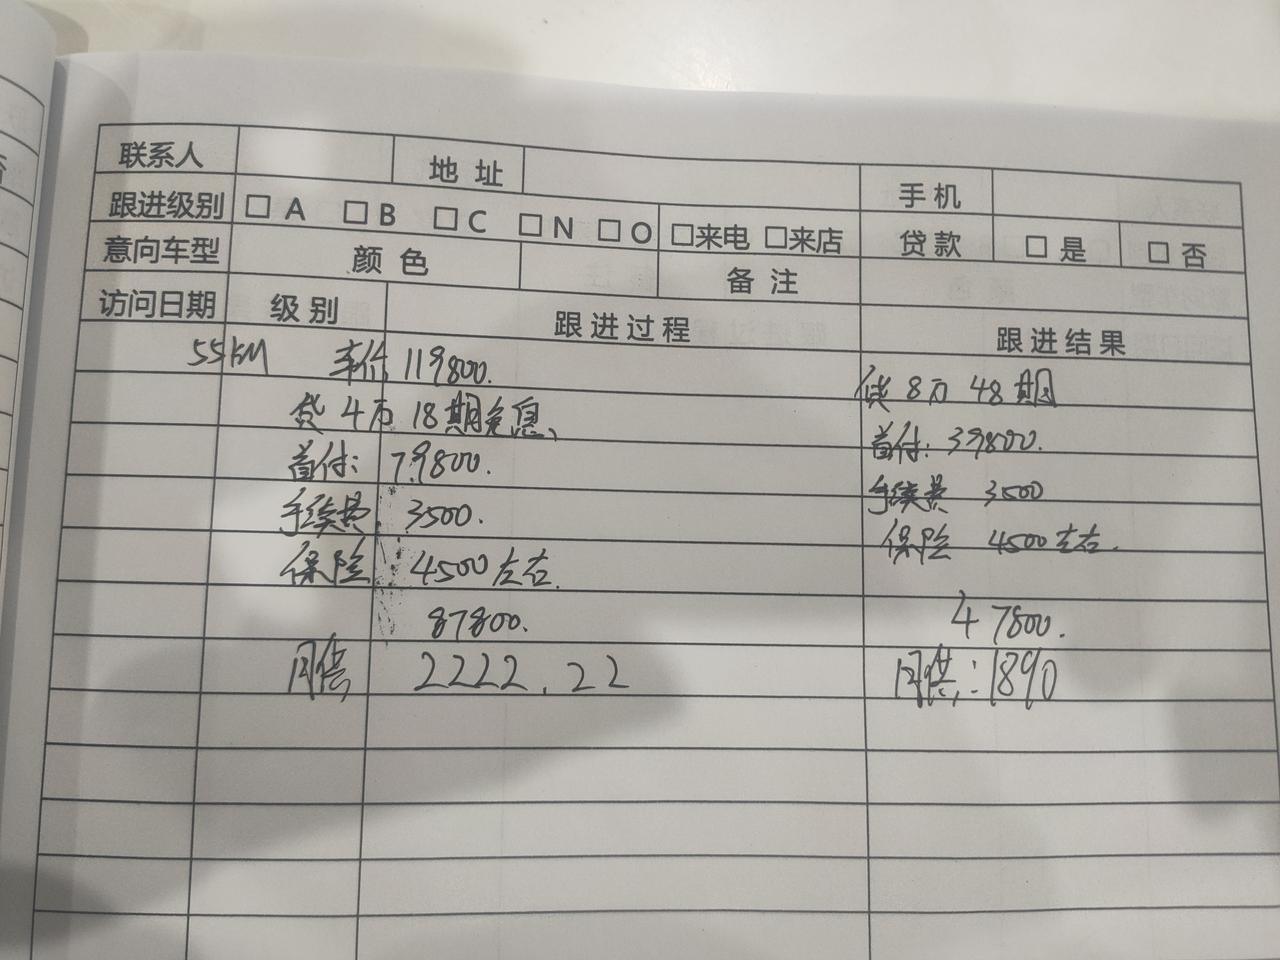 联系人 地址 手机
跟进级别 □ A □ B □ C □ N □ O □来电 □来店 贷款 □ 是 □ 否
意向车型 颜色 备注
访问日期 级别 跟进过程 跟进结果
55KM 车价 119800.
贷 8万 48期
贷 4万 18期免息、
首付: 39800.
首付: 79800.
手续费 3500
手续费 3500.
保险 4500左右.
保险 4500左右.
87800.
47800.
月供 2222.22
月供: 1890